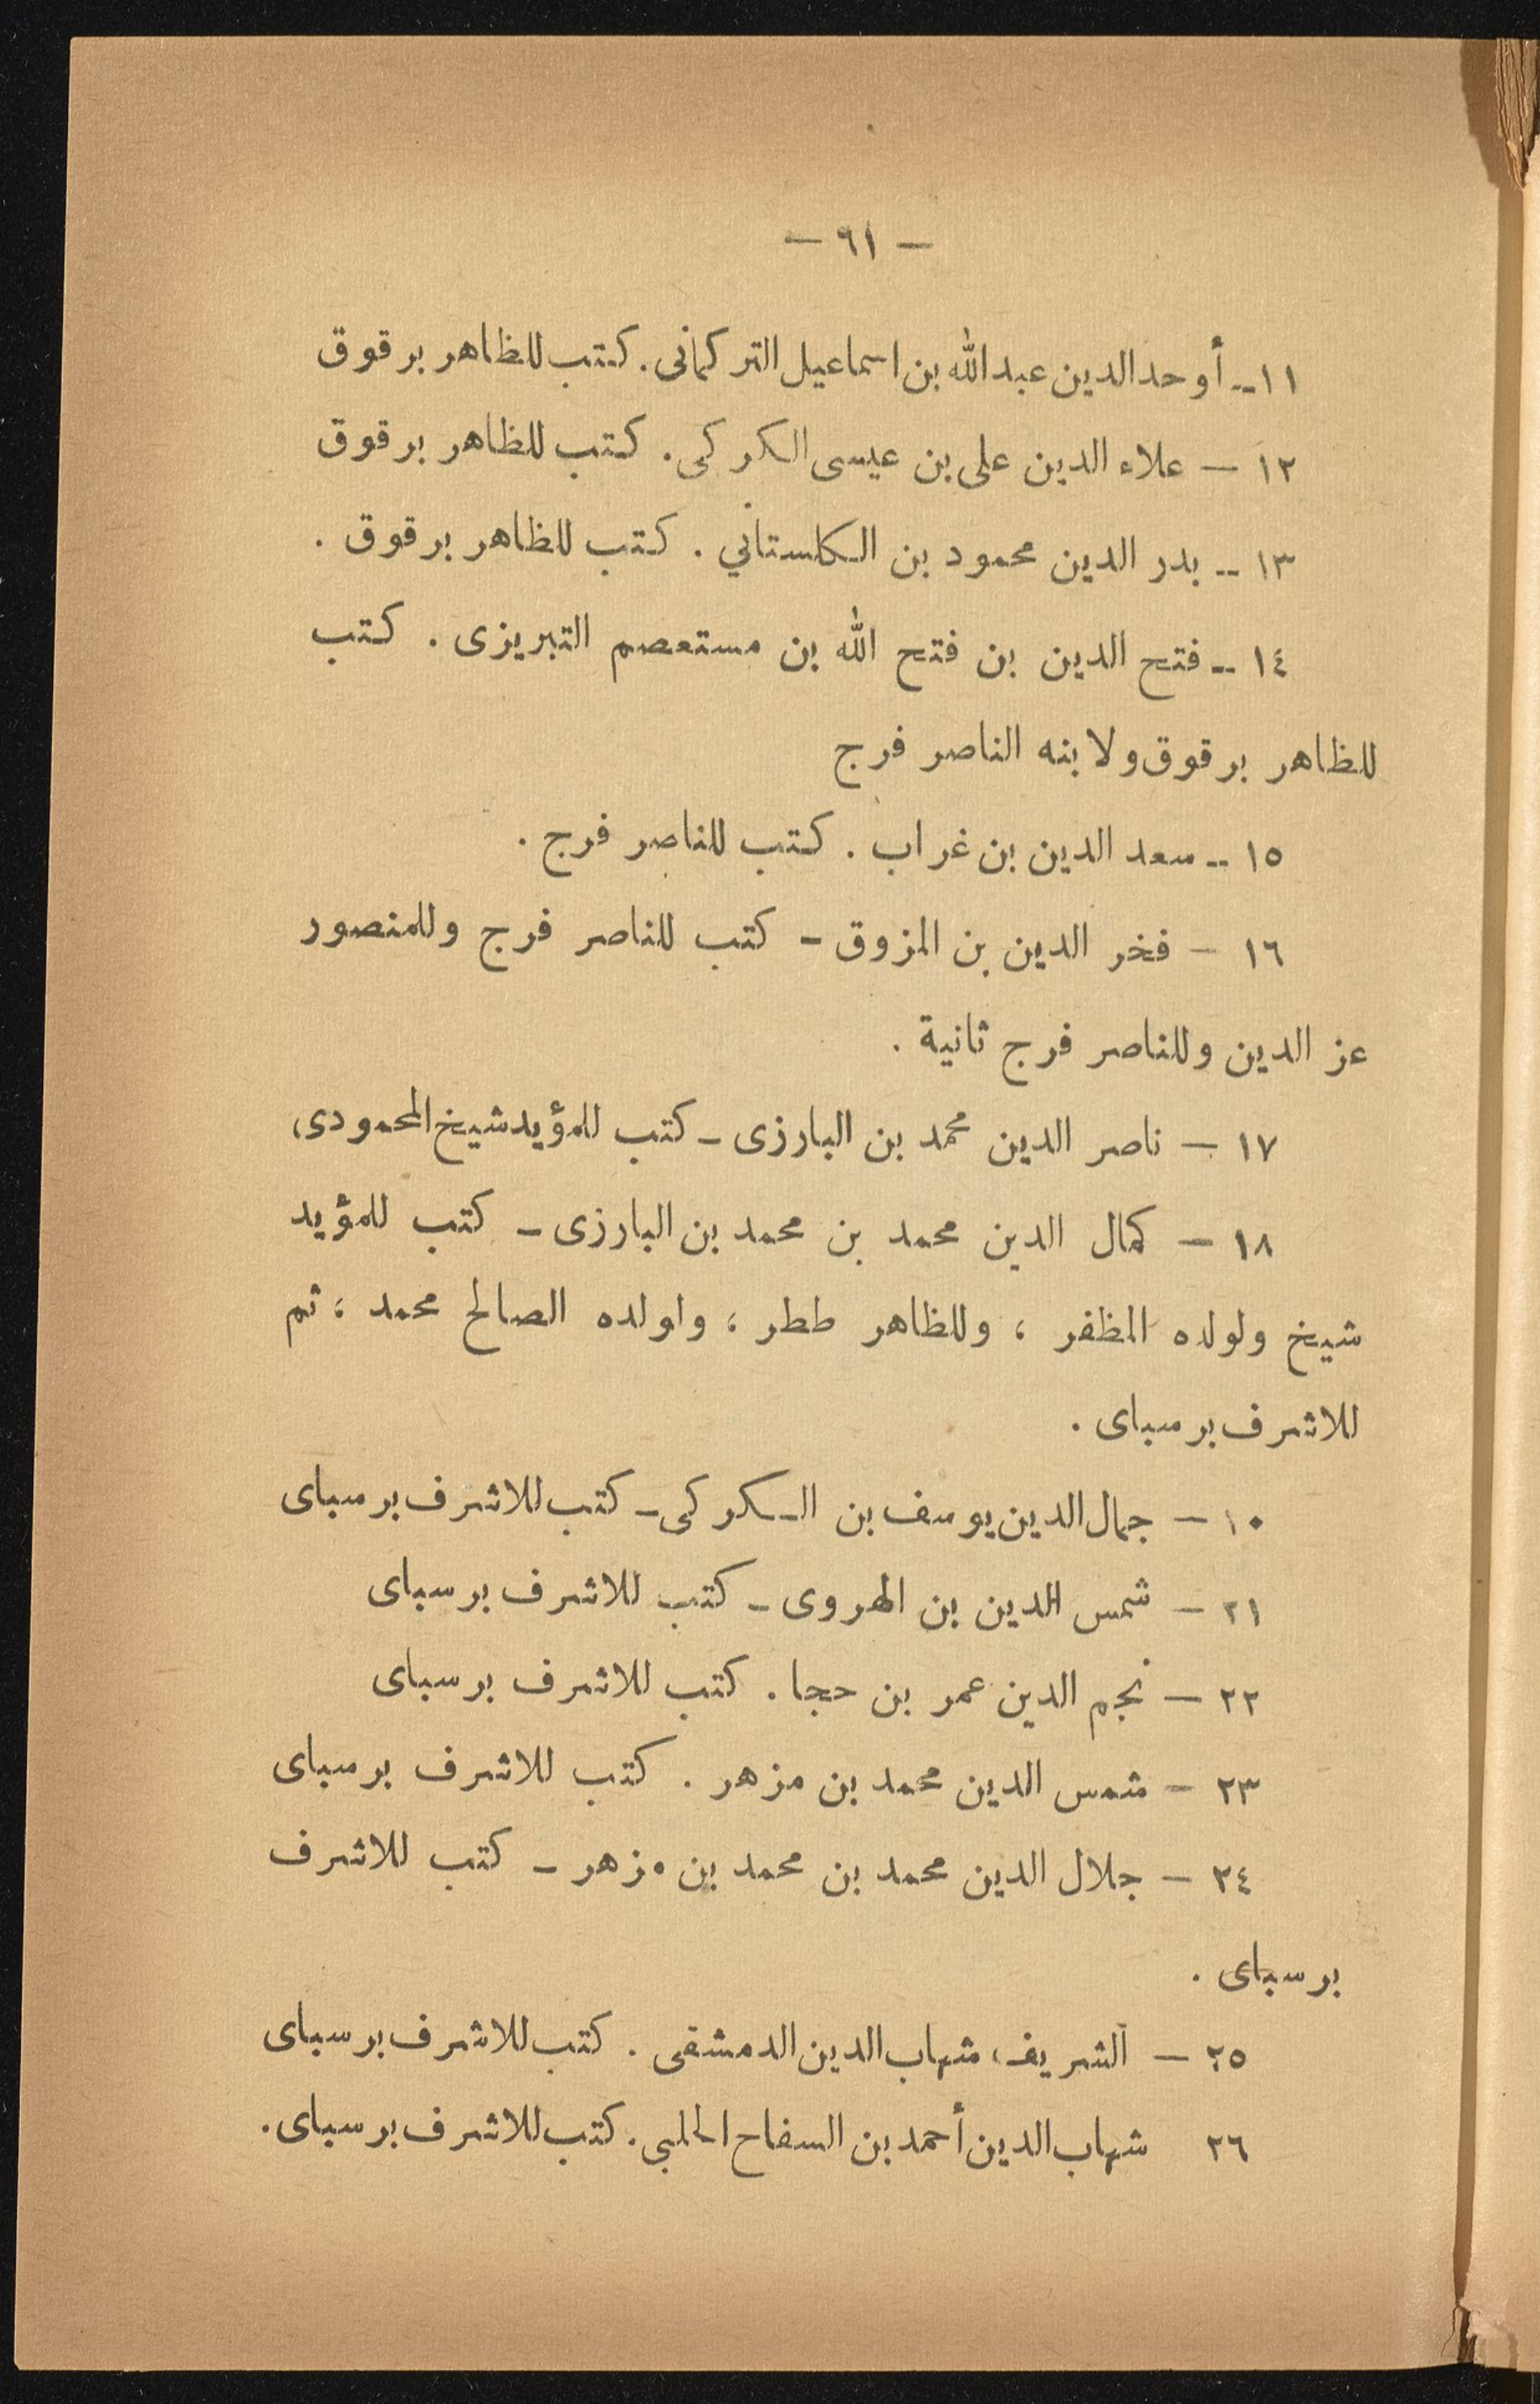 — ٩١ —
١١ــ أوحد الدين عبد الله بن اسماعيل التركمانى. كتب للظاهر برقوق
١٢ — علاء الدين على بن عيسى الكركى. كتب للظاهر برقوق
١٣ ــ بدر الدين محمود بن الكلستاني . كتب للظاهر برقوق .
١٤ ــ فتح الدين بن فتح الله بن مستعصم التبريزى . كتب
للظاهر برقوق ولابنه الناصر فرج
١٥ ــ سعد الدين بن غراب . كتب للناصر فرج .
١٦ — فخر الدين بن المزوق - كتب للناصر فرج وللمنصور
عز الدين وللناصر فرج ثانية .
١٧ — ناصر الدين محمد بن البارزى - كتب للمؤيد شيخ المحمودى،
١٨ — كمال الدين محمد بن محمد بن البارزى - كتب للمؤيد
شيخ ولولده المظفر ، وللظاهر ططر ، واولده الصالح محمد ، ثم
للاشرف برسباى .
١٠ — جمال الدين يوسف بن الكركى - كتب للاشرف برسباى
٢١ — شمس الدين بن الهروى - كتب للاشرف برسباى
٢٢ — نجم الدين عمر بن حجا . كتب للاشرف برسباى
٢٣ — شمس الدين محمد بن مزهر . كتب للاشرف برسباى
٢٤ — جلال الدين محمد بن محمد بن مزهر - كتب للاشرف
برسباى .
٢٥ — الشريف، شهاب الدين الدمشقى . كتب للاشرف برسباى
٢٦ شهاب الدين أحمد بن السفاح الحلبي. كتب للاشرف برسباى.